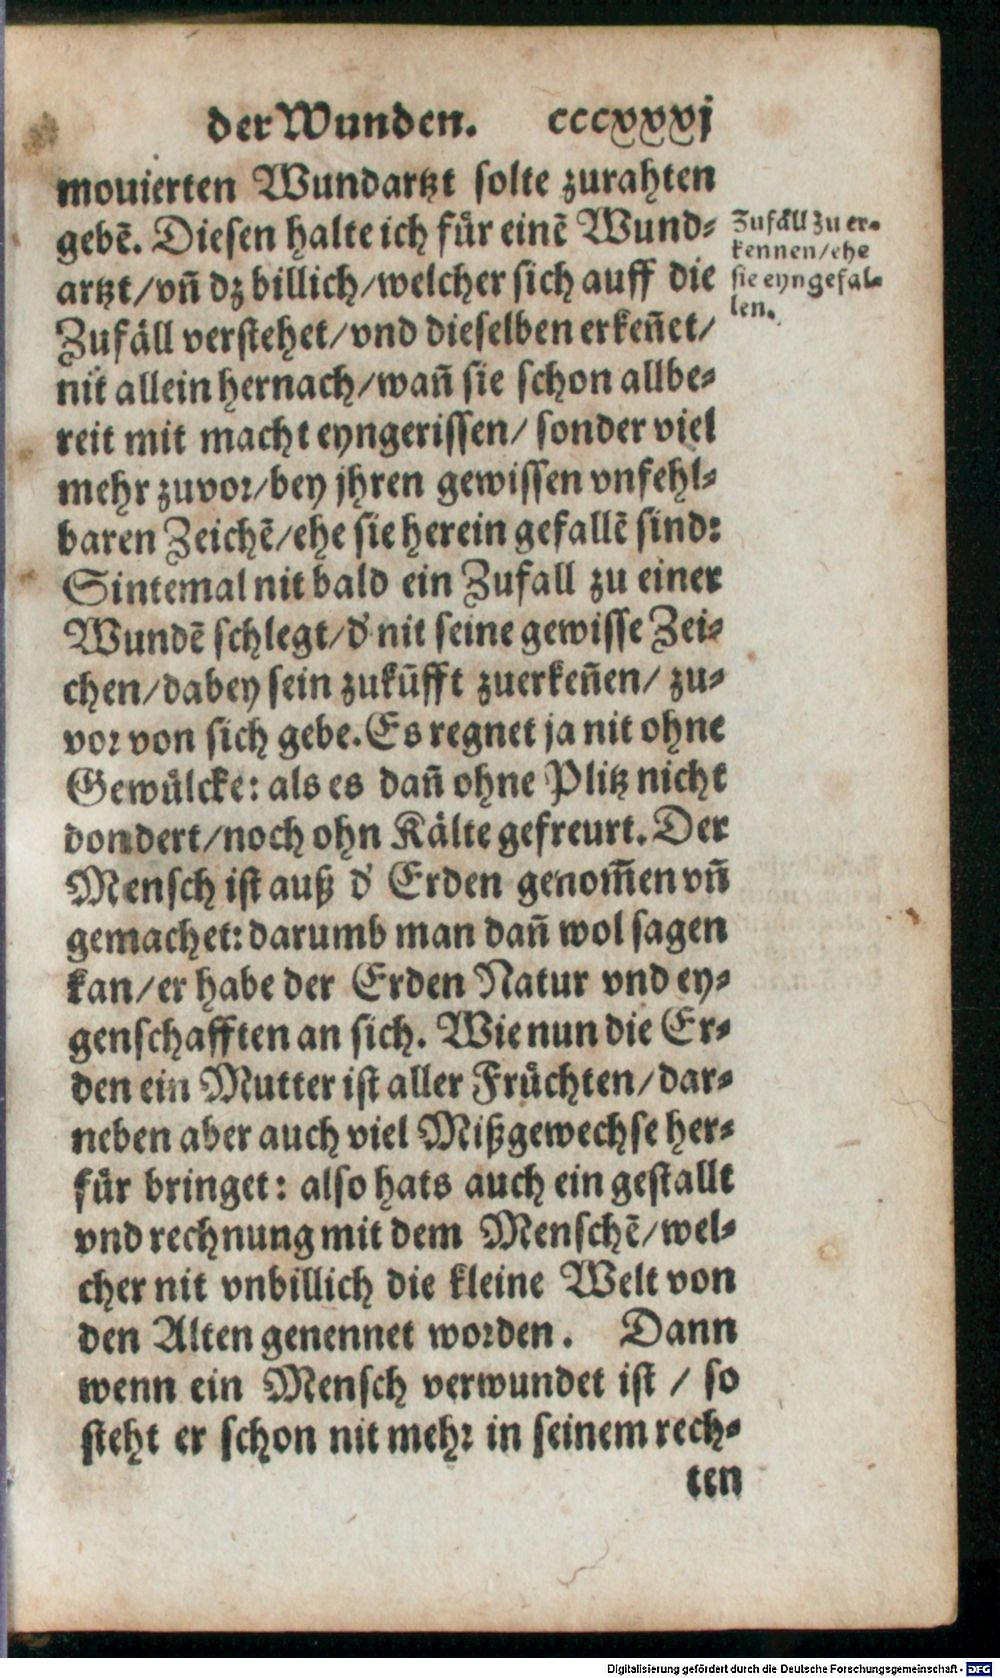 der Wunden. cccxxxvj
mouierten Wundartzt solte zurahten
gebẽ. Diesen halte ich fuͤr einẽ Wund-
artzt/vñ dz billich/welcher sich auff die
Zufaͤll verstehet/vnd dieselben erkeñet/
nit allein hernach/wañ sie schon allbe-
reit mit macht eyngerissen/ sonder viel
mehr zuvor/bey jhren gewissen vnfehl-
baren Zeichẽ/ehe sie herein gefallẽ sind:
Sintemal nit bald ein Zufall zu einer
Wundẽ schlegt/d' nit seine gewisse Zei-
chen/dabey sein zukũfft zuerkeñen/ zu-
vor von sich gebe. Es regnet ja nit ohne
Gewuͤlcke: als es dañ ohne Plitz nicht
dondert/noch ohn Kaͤlte gefreurt. Der
Mensch ist auß d' Erden genom̃en vñ
gemachet: darumb man dañ wol sagen
kan/er habe der Erden Natur vnd ey-
genschafften an sich. Wie nun die Er-
den ein Mutter ist aller Fruͤchten/dar-
neben aber auch viel Mißgewechse her-
fuͤr bringet: also hats auch ein gestallt
vnd rechnung mit dem Menschẽ/wel-
cher nit vnbillich die kleine Welt von
den Alten genennet worden. Dann
wenn ein Mensch verwundet ist / so
steht er schon nit mehr in seinem rech-
ten
Zufaͤll zu er-
kennen/ehe
sie eyngefal-
len.
Digitalisierung gefördert durch die Deutsche Forschungsgemeinschaft - DFG